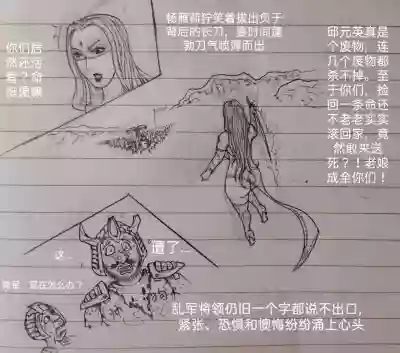 你们居
然还活
着？命
杨雁荷狞笑着拔出负于
背后的长刀，霎时间蓬
勃刀气喷薄而出
邱元英真是
个废物，连
几个废物都
杀不掉。至
于你们，捡
回一条命还
不老老实实
滚回家，竟
然敢来送
死？！老娘
成全你们！
这...
遭了...
现在怎么办？
乱军将领仍旧一个字都说不出口，
紧张、恐惧和懊悔纷纷涌上心头